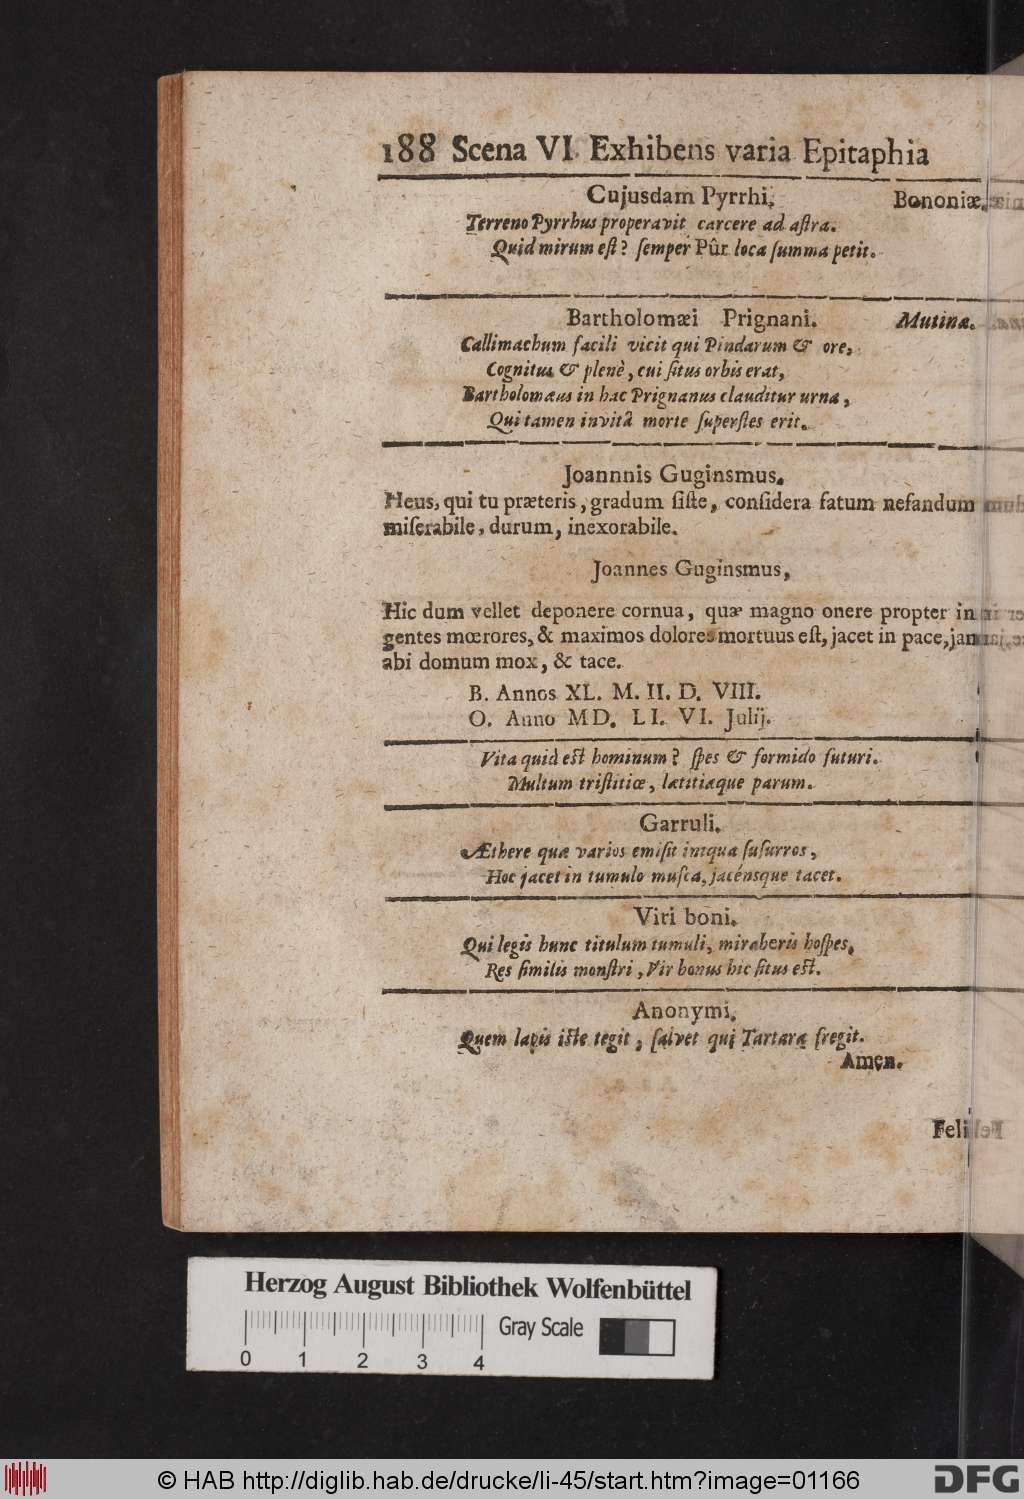 188 Scena VI. Exhibens varia Epitaphia
Cujusdam Pyrrhi, Bononiæ.
Terreno Pyrrhus properavit carcere ad aſtra.
Quid mirum eſt? ſemper Pûr loca ſumma petit.
Bartholomæi Prignani. Mutinæ.
Callimachum facili vicit qui Pindarum & ore,
Cognitus & plenè, cui ſitus orbis erat,
Bartholomæus in hac Prignanus clauditur urna,
Qui tamen invitâ morte ſuperſtes erit.
Joannnis Guginsmus.
Heus, qui tu præteris, gradum ſiſte, conſidera fatum nefandum
miſerabile, durum, inexorabile.
Joannes Guginsmus,
Hic dum vellet deponere cornua, quæ magno onere propter in
gentes mœrores, & maximos dolores mortuus eſt, jacet in pace, jam
abi domum mox, & tace.
B. Annos XL. M. II. D. VIII.
O. Anno MD. LI. VI. Julij.
Vita quid eſt hominum? ſpes & formido futuri.
Multum triſtitiæ, lætitiæque parum.
Garruli.
Æthere quæ varios emiſit iniqua ſuſurros,
Hoc jacet in tumulo muſca, jacénsque tacet.
Viri boni.
Qui legis hunc titulum tumuli, miraberis hoſpes,
Res ſimilis monſtri, Vir bonus hic ſitus eſt.
Anonymi.
Quem lapis iſte tegit, ſalvet qui Tartara fregit.
Amen.
Feli
Herzog August Bibliothek Wolfenbüttel
Gray Scale
0 1 2 3 4
© HAB http://diglib.hab.de/drucke/li-45/start.htm?image=01166
DFG